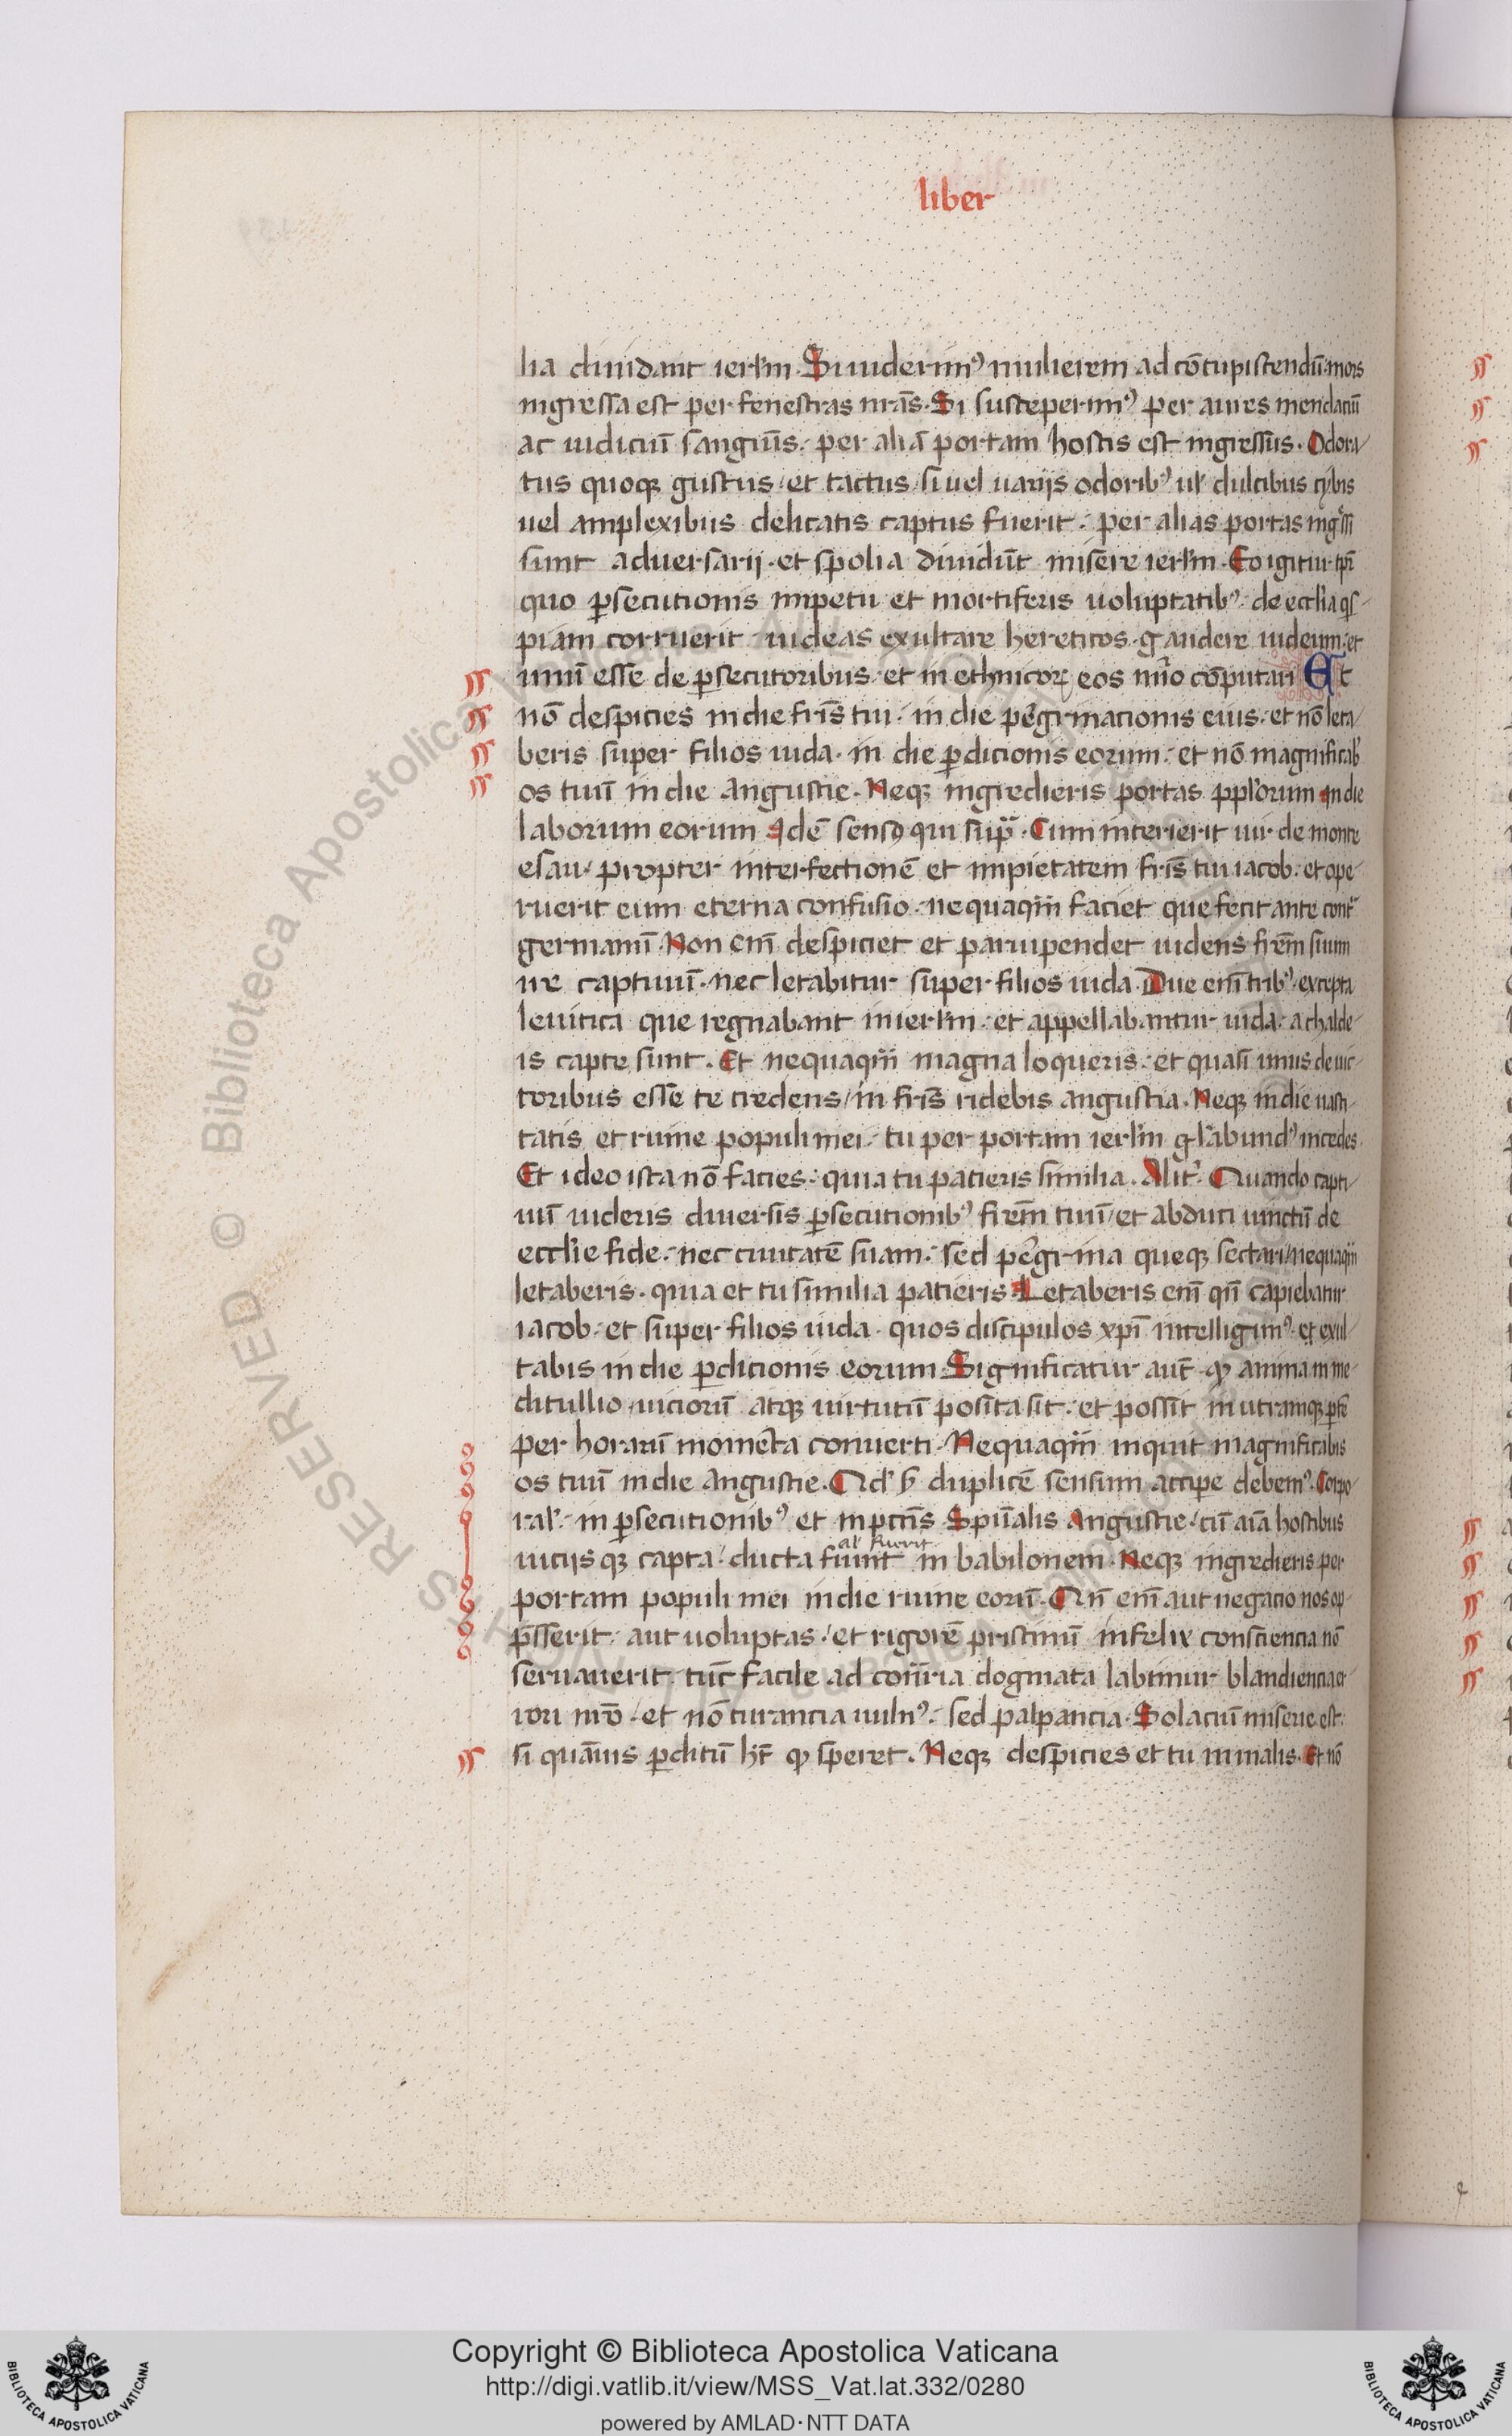 liber
lia diuidant ierľm. Si uiderimꝰ mulierem ad cōcupiscendū: mors
ingressa est per fenestras nrās. Si susceperimꝰ per aures mendaciū
ac iudiciū sanguīs: per aliā portam hostis est ingressus. Odora/
tus quoqꝫ gustus / et tactus / si uel uarijs odoribꝰ uľ dulcibus cybis
uel amplexibus delicatis captus fuerit: per alias portas ingressi
sunt aduersarij. et spolia diuidūt misere ierľm. Eo igitur tpr̄
quo ꝑsecutionis impetu et mortiferis uoluptatibꝰ: de eccľia qs/
piam corruerit uideas exultare hereticos. gaudere iudeum: et
unū esse de ꝑsecutoribus: et in ethnicoꝝ eos nūro cōputari Et
nō despicies in die fr̄is tui: in die peregrinacionis eius: et nō leta/
beris super filios iuda. in die ꝑdicionis eorum: et nō magnificab̓
os tuū in die angustie. Neqꝫ ingredieris portas ppľorum in die
laborum eorum Idē sensꝰ qui sup̄. Cum interierit uir de monte
esau / propter interfectionē et impietatem fr̄is tui iacob: et ope/
ruerit eum eterna confusio. nequaqm̄ faciet que fecit ante contra
germanū. Non em̄ despiciet et paruipendet uidens fr̄em suum
ire captiuū. nec letabitur super filios iuda. Due em̄ tribꝰ: excepta
leuitica que regnabant in ierľm: et appellabantur iuda: a chalde/
is capte sunt. Et nequaqm̄ magna loqueris: et quasi unus de uic/
toribus esse te credens / in fr̄is ridebis angustia. Neqꝫ in die uasti/
tatis et ruine populi mei: tu per portam ierľm gľabundꝰ incedes.
Et ideo ista nō facies: quia tu pacieris similia. Alit̓. Quando capti/
uū uideris diuersis ꝑsecutionibꝰ fr̄em tuū / et abduci uinctū de
eccľie fide: nec ciuitatē suam: sed peregrina queqꝫ sectari / nequaqm̄
letaberis. quia et tu similia pacieris. Letaberis em̄ qn̄ capiebatur
iacob: et super filios iuda. quos discipulos xpī intelligimꝰ. et exul/
tabis in die ꝑdicionis eorum. Significatur aut̄ ꝙ anima in me/
ditullio uiciorū atqꝫ uirtutū posita sit: et possit in utramqꝫ ꝑtē
per horarū momēta conuerti. Nequaqm̄ inquit magnificabis
os tuū in die angustie. Ad h̓ duplicē sensum accipe debemꝰ. Corpo/
ral̓: in ꝑsecutionibꝰ et in pctīs Spūalis angustie / cū aīa hostibus
al̓ fuerit
uicijsqꝫ capta: ducta fuīnt in babilonem. Neqꝫ ingredieris per
portam populi mei in die ruine eorū. Qn̄ em̄ aut negacio nos op/
p̄sserit: aut uoluptas: et rigorē pristinū infelix consciencia nō
seruauerit: tūc facile ad cont̄ria dogmata labimur blandiencia er
rori nrō. et nō curancia uulnꝰ: sed palpancia. Solaciū miserie est:
si quāuis ꝑditū hr̄t ꝙ speret. Neqꝫ despicies et tu in malis. Et nō
Copyright © Biblioteca Apostolica Vaticana
http://digi.vatlib.it/view/MSS_Vat.lat.332/0280
powered by AMLAD·NTT DATA